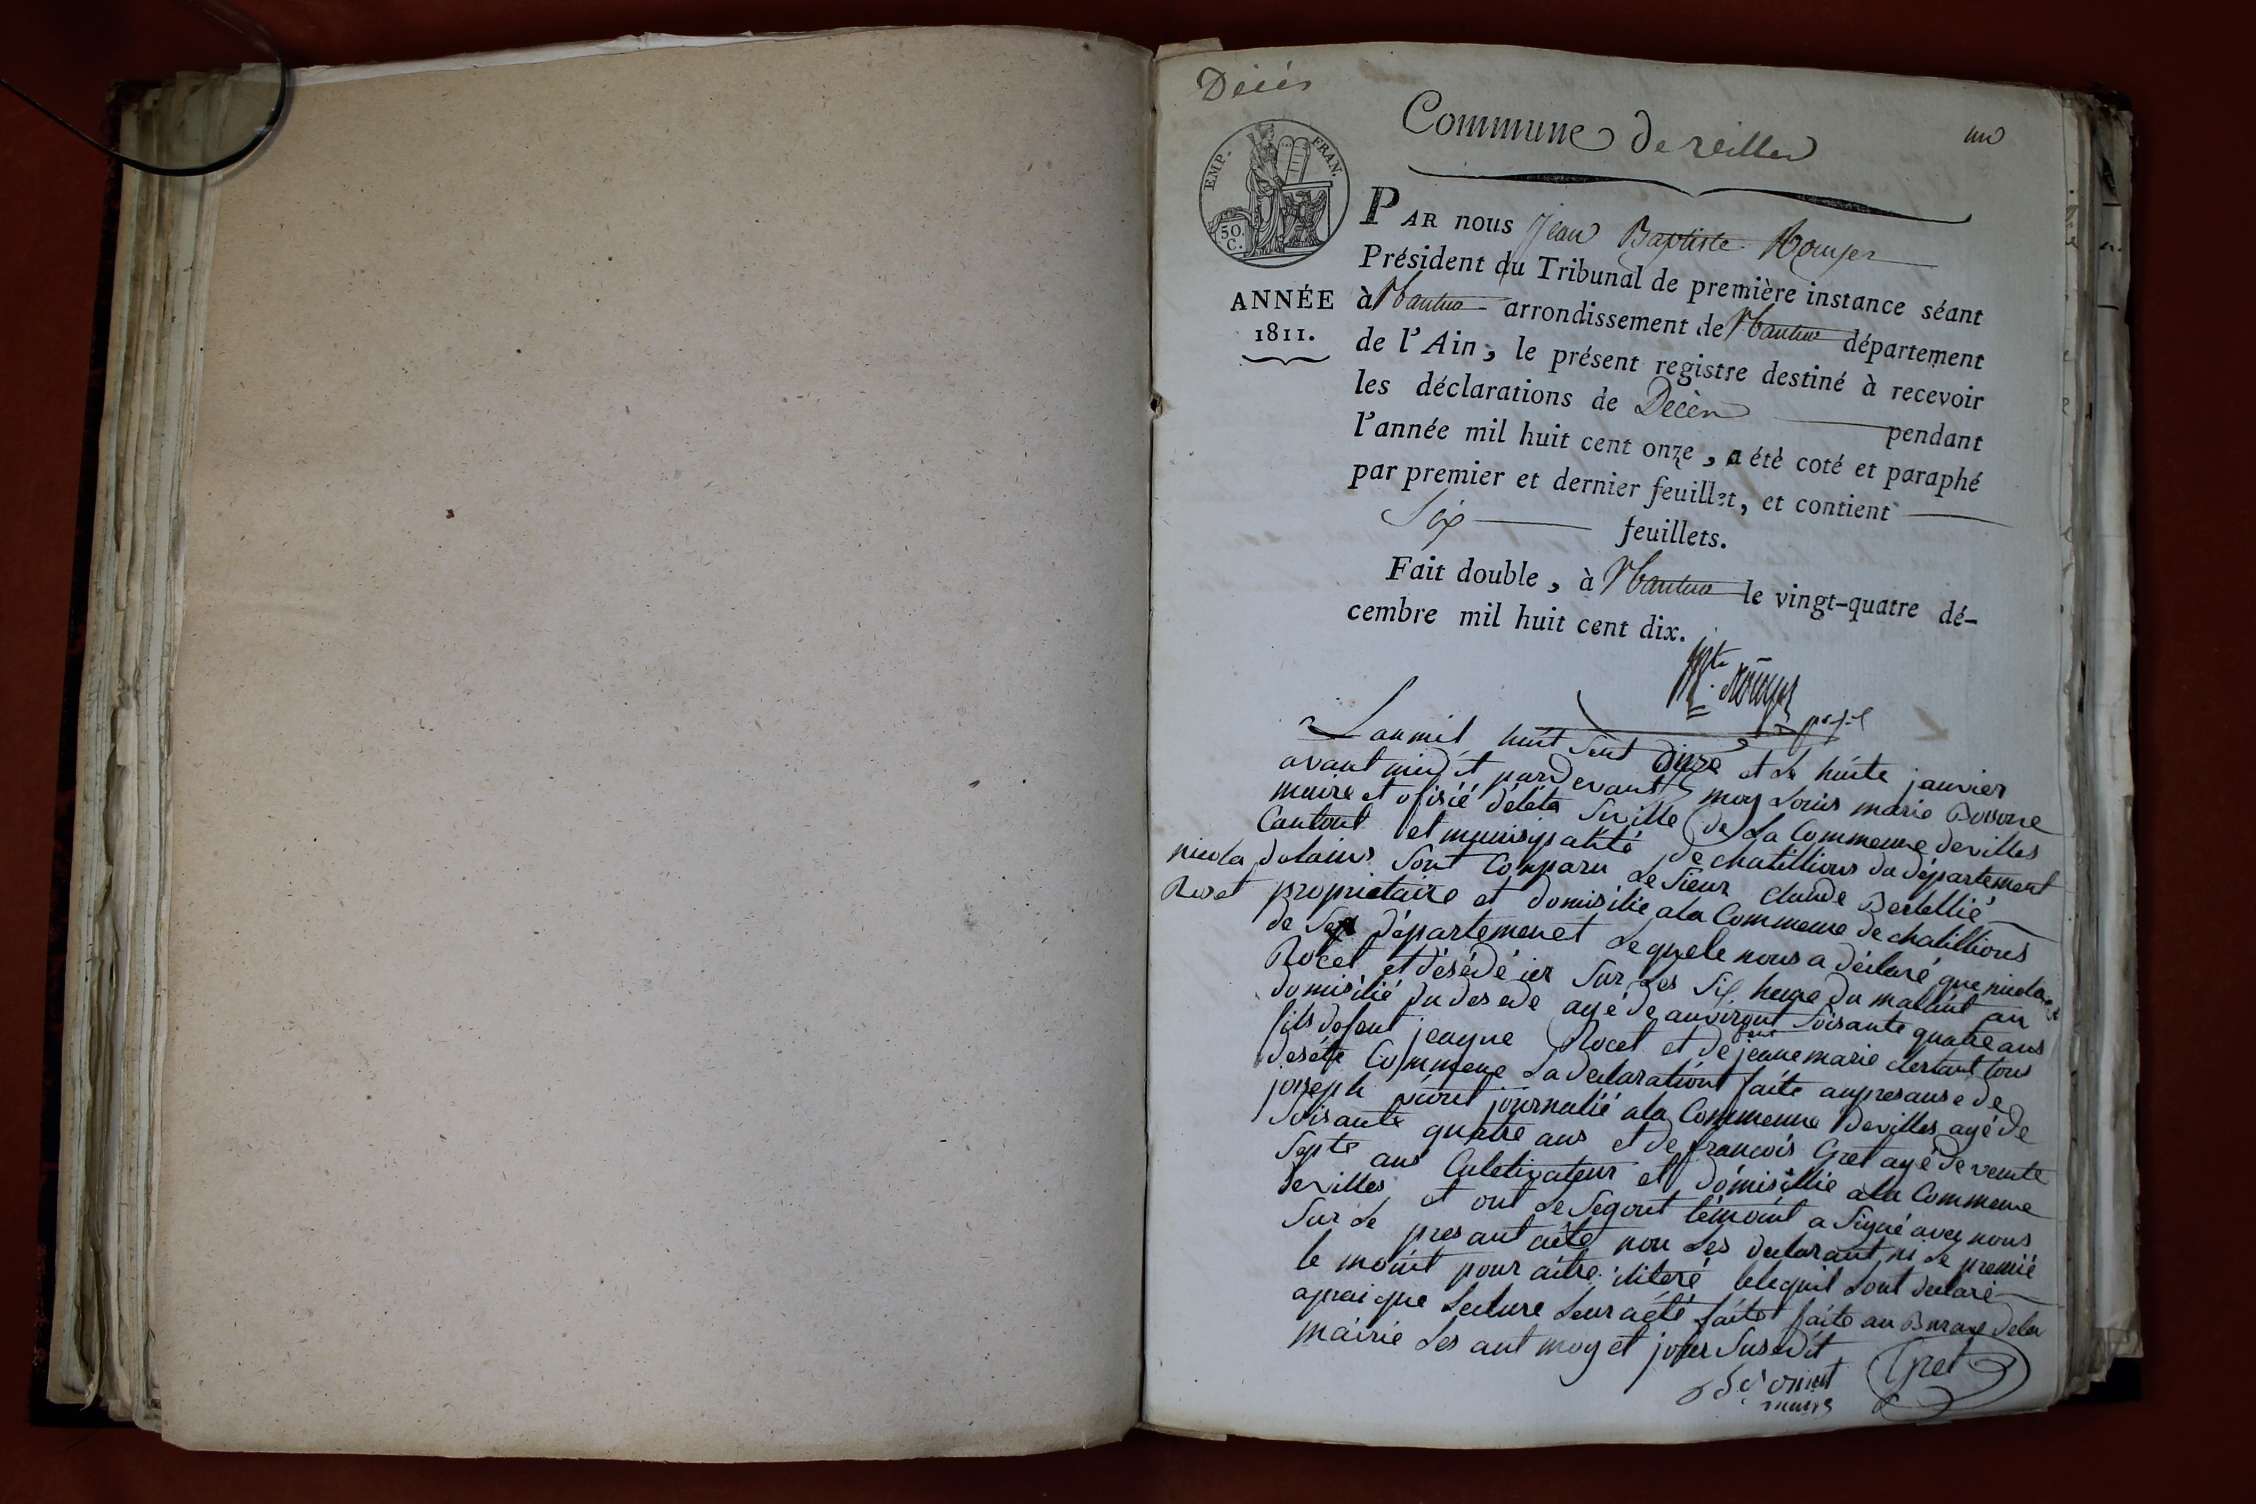 Décès
Commune de Villes
un
EMP. FRAN.
50.
C.
ANNÉE
1811.
PAR nous Jean Baptiste Rouyer
Président du Tribunal de première instance séant
à Nantua arrondissement de Nantua département
de l'Ain, le présent registre destiné à recevoir
les déclarations de Décès pendant
l'année mil huit cent onze, a été coté et paraphé
par premier et dernier feuillet, et contient
Six feuillets.
Fait double, à Nantua le vingt-quatre dé-
cembre mil huit cent dix.
Lan mil huit sent onze et le huite janvier
avant midit pardevant moy Louis marie
maire et ofisié déléta siville de la Commeune devilles
Cantont et munisipalité de chatillions du département
nicola
Roset
delains sont Comparu le sieur claude Bertellié
propriétaire et domisilié ala Commeune de chatillions
de département lequele nous a déclaré que nicola
Rocet et désédé ier sur les six heure du matint au
domisilié du desede agé de anviront soisante quatre ans
fils defeut Rocet et de feut jeanemarie tous
deséte Commeune la declarationt faite anpresanse de
joseph journalié ala Commeune devilles agé de
soisante quatre ans et de francois Gret agé de vente
septe ans Culetivateur et domisillié ala Commeune
devilles et ont le segont témoint a signé avec nous
sur le presant acte non les declarant ni le premié
te moint pour aitre ilitéré lele quil sont declaré
aprai que lecture leur a été faite faite au Buraux dela
mairie les ant moy et jour susedit
Gret
maire